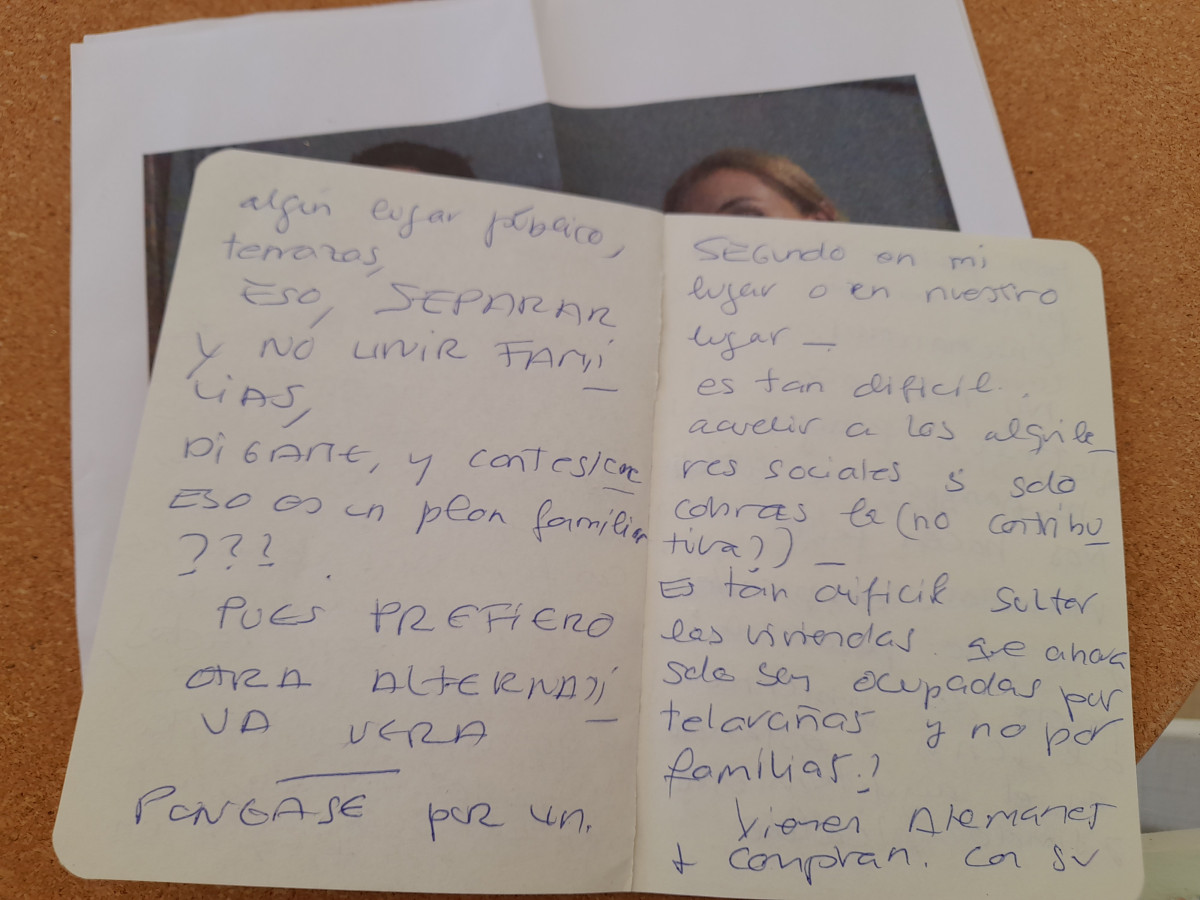 algún lugar público,
terrazas,
ESO, SEPARAR
Y NO UNIR FAMI
LIAS,
DIGAME, y contes
ESO es un plan familiar
???
PUES PREFIERO
OTRA ALTERNATI
VA VERA
PONGASE por un.
SEGUNDO en mi
lugar o en nuestro
lugar —
es tan dificil.
acudir a los alquile
res sociales si solo
cobras la (no contribu
tiva?) —
Es tán dificil soltar
las viviendas. que ahora
solo son ocupadas por
telarañas y no por
familias.?
Vienen Alemanes
+ compran. con su